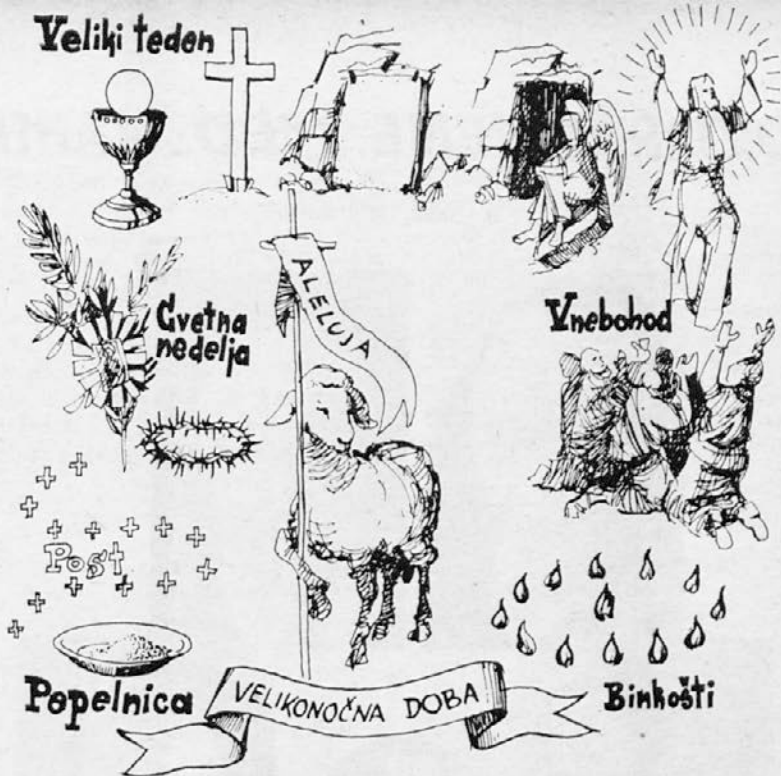 Veliki teden
ALELUJA
Cvetna
nedelja
Vnebohod
Post
Popelnica
VELIKONOČNA DOBA
Binkošti